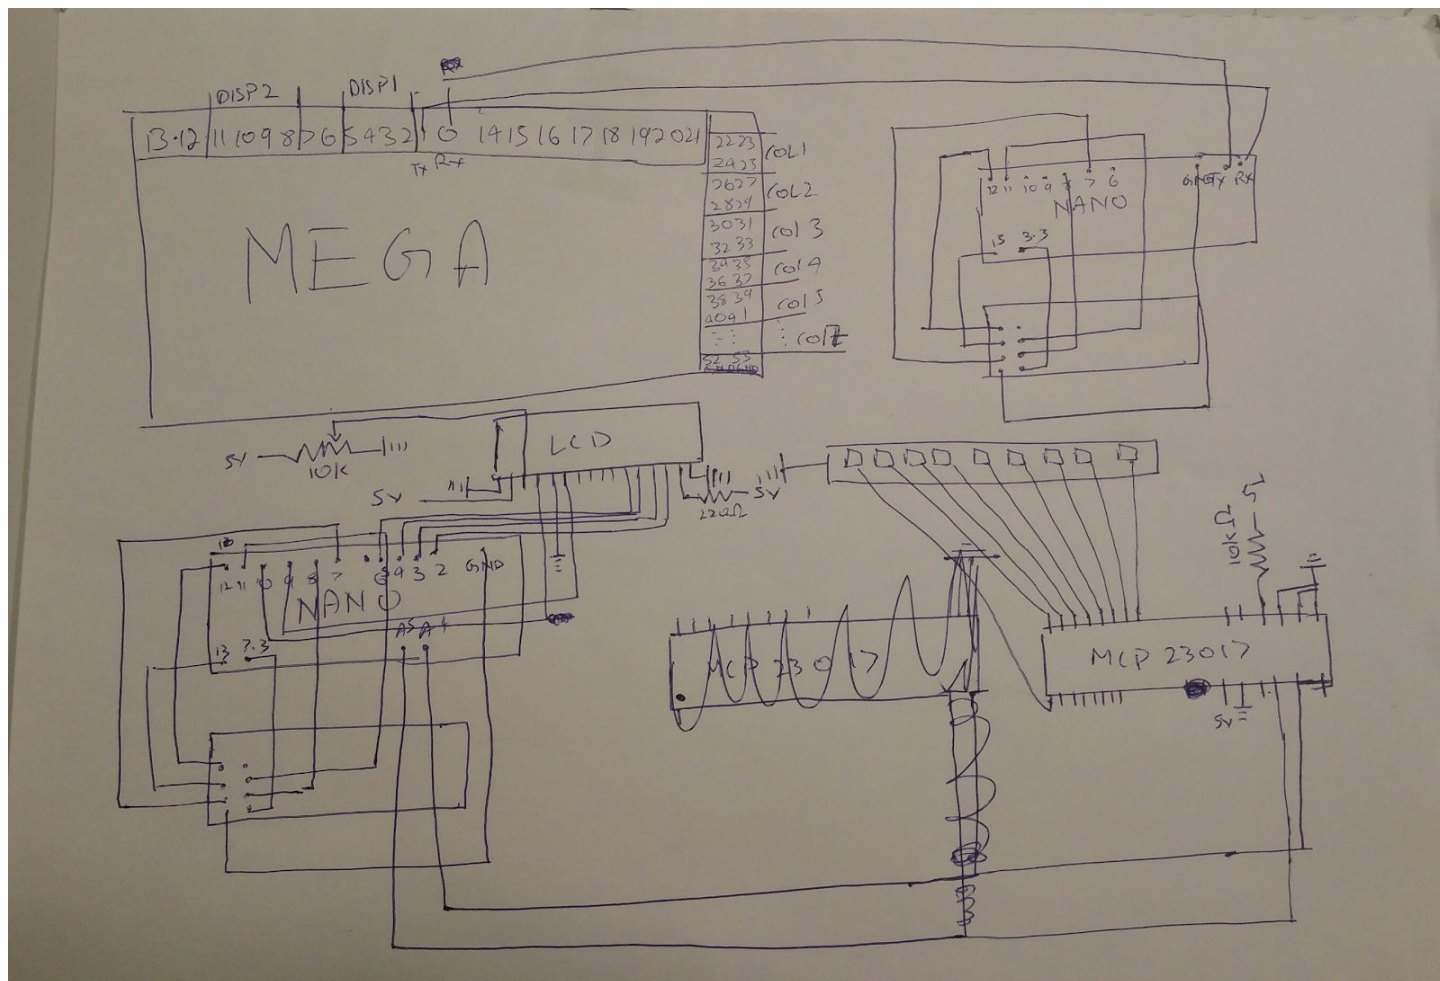 DISP2 DISP1
13 12 11 10 9 8 7 6 5 4 3 2 1 0 14 15 16 17 18 19 20 21
Tx Rx
MEGA
22 23
24 25
COL1
26 27
28 29
COL2
30 31
32 33
COL 3
34 35
36 37
COL 4
38 39
40 41
COL 5
COL7
52 53
12 11 10 9 8 7 6 GND Tx Rx
NANO
13 3.3
5V
10k
LCD
5V
220Ω
5V
12 11 10 9 8 7 6 5 4 3 2 GND
NANO
A5 A4
13 3.3
MCP 23017
10kΩ
5V
MCP 23017
5V